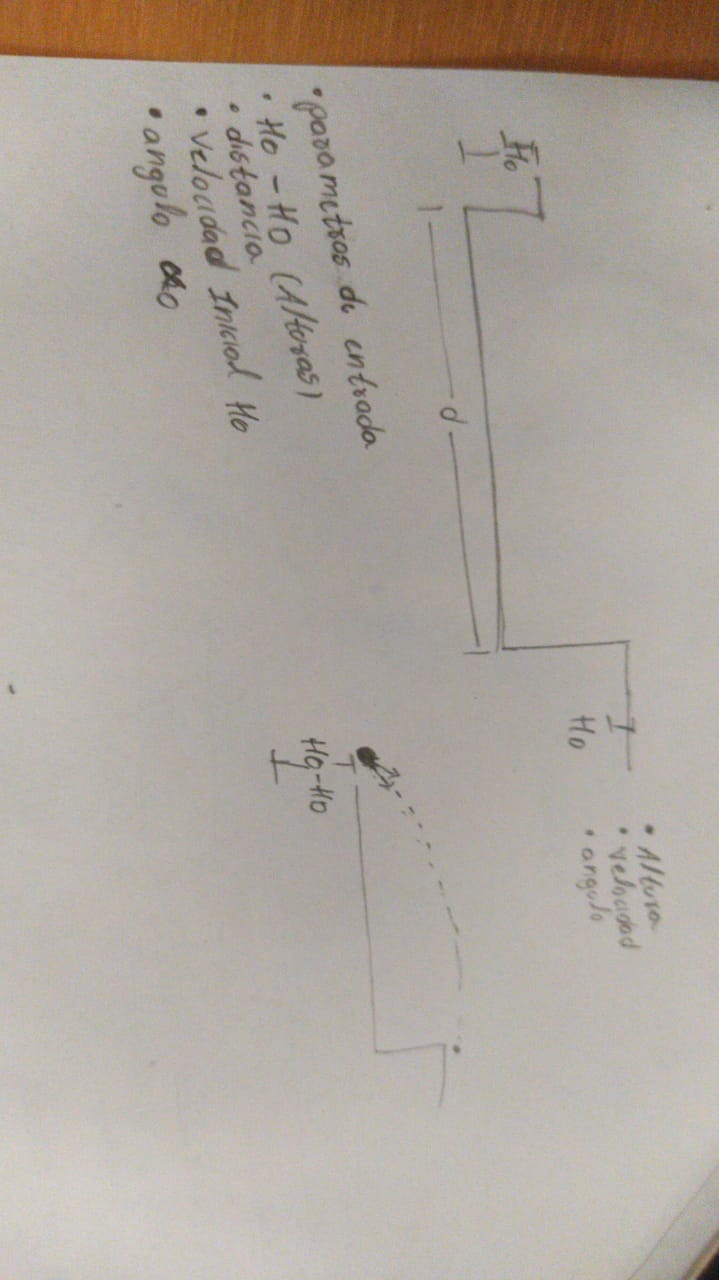 • Altura
• velocidad
• angulo
Ho
Ho
d
• parametros de entrada
• Ho - HO (Alturas)
• distancia
• velocidad Inicial Ho
• angulo αo
Ho-Ho